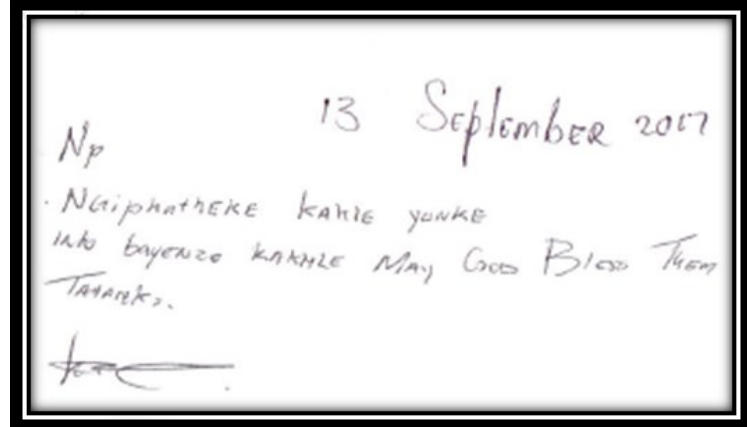 13 September 2017
Np
. NGiphatheKE KAHLE yoNKE
into bayenze KAKHLE MAy God Bless THEM
THANKS.